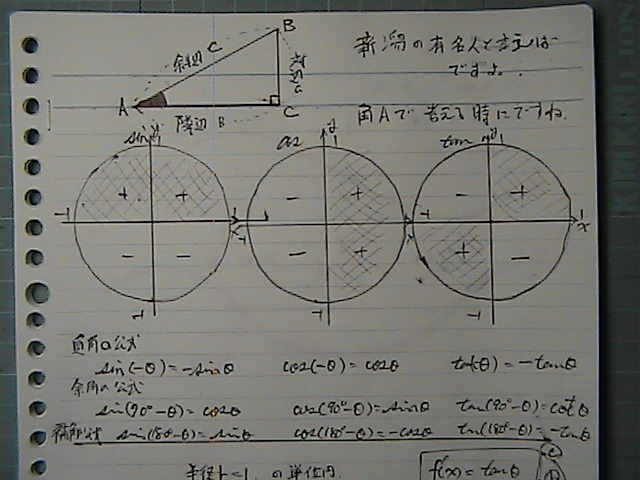 B
斜辺 C
対辺 a
A
C
隣辺 B
新潟の有名人と言えば
ですよ.
角Aで考える時にですね
sin
y
1
cos
y
1
tan
y
1
+ +
- +
- +
-1
x
-1
x
-1
1
x
- -
- +
+ -
-1
-1
-1
負角の公式
sin(-θ)=-sinθ cos(-θ)=cosθ tan(-θ)=-tanθ
余角の公式
sin(90°-θ)=cosθ cos(90°-θ)=sinθ tan(90°-θ)=cotθ
sin(180°-θ)=sinθ cos(180°-θ)=-cosθ tan(180°-θ)=-tanθ
半径r=1 の単位円
f(x)=tanθ